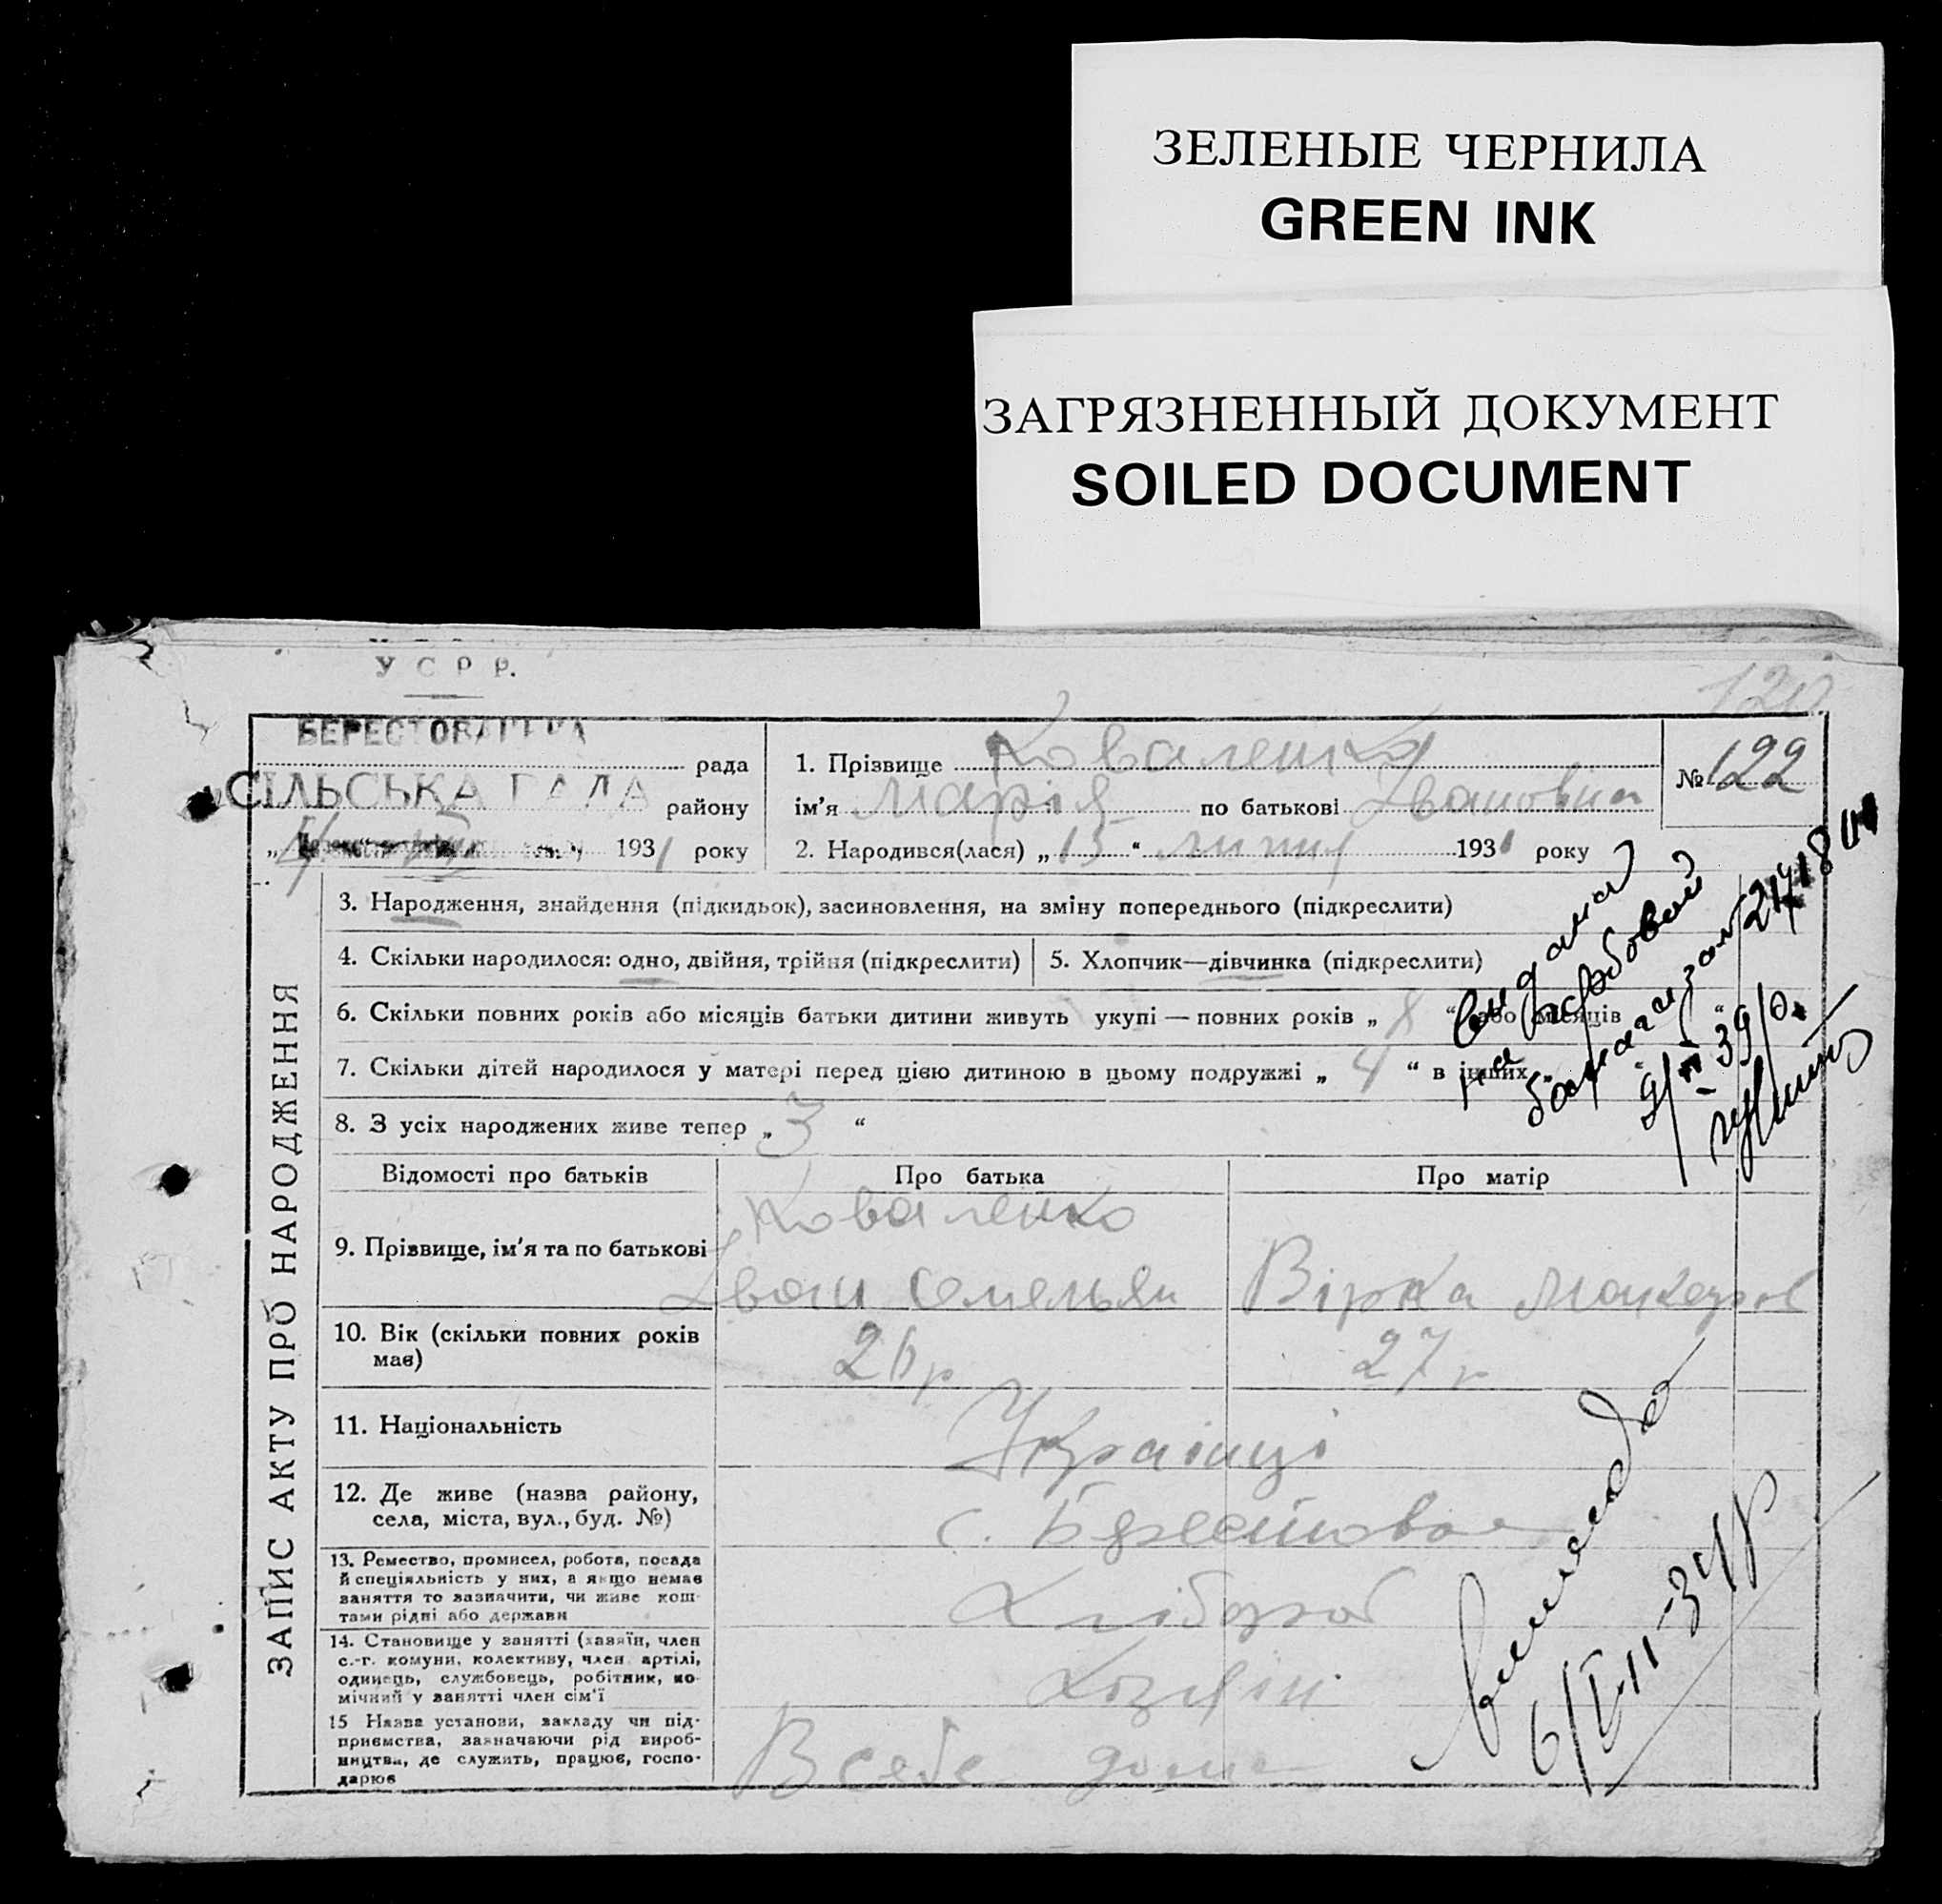 ЗЕЛЕНЫЕ ЧЕРНИЛА
GREEN INK
ЗАГРЯЗНЕННЫЙ ДОКУМЕНТ
SOILED DOCUMENT
У С Р Р.
120
БЕРЕСТОВАНСЬКА
рада
СІЛЬСЬКА РАДА
району
1931 року
1. Прізвище Коваленко
№ 122
ім'я Марія по батькові Івановна
2. Народився(лася) „ 13 “ липня 1931 року
ЗАПИС АКТУ ПРО НАРОДЖЕННЯ
3. Народження, знайдення (підкидьок), засиновлення, на зміну попереднього (підкреслити)
4. Скільки народилося: одно, двійня, трійня (підкреслити)
5. Хлопчик—дівчинка (підкреслити)
6. Скільки повних років або місяців батьки дитини живуть укупі — повних років „ 8 “ або місяців „ “
7. Скільки дітей народилося у матері перед цією дитиною в цьому подружжі „ 4 “ в інших „ “
8. З усіх народжених живе тепер „ 3 “
Відомості про батьків
Про батька
Про матір
9. Прізвище, ім'я та по батькові
Коваленко
Іван Омельян
Вірка
10. Вік (скільки повних років має)
26 р
27 р
11. Національність
Українці
12. Де живе (назва району,
села, міста, вул., буд. №)
с. Берестовая
13. Ремество, промисел, робота, посада
й спеціяльність у них, а якщо немає
заняття то зазначити, чи живе кош-
тами рідні або держави
Хлібороб
14. Становище у занятті (хазяїн, член
с.-г. комуни, колективу, член артілі,
одинець, службовець, робітник, по-
мічний у занятті член сім'ї
Хозяїн
15 Назва установи, закладу чи під-
приємства, зазначаючи рід вироб-
ництва, де служить, працює, госпо-
дарює
В себе дома